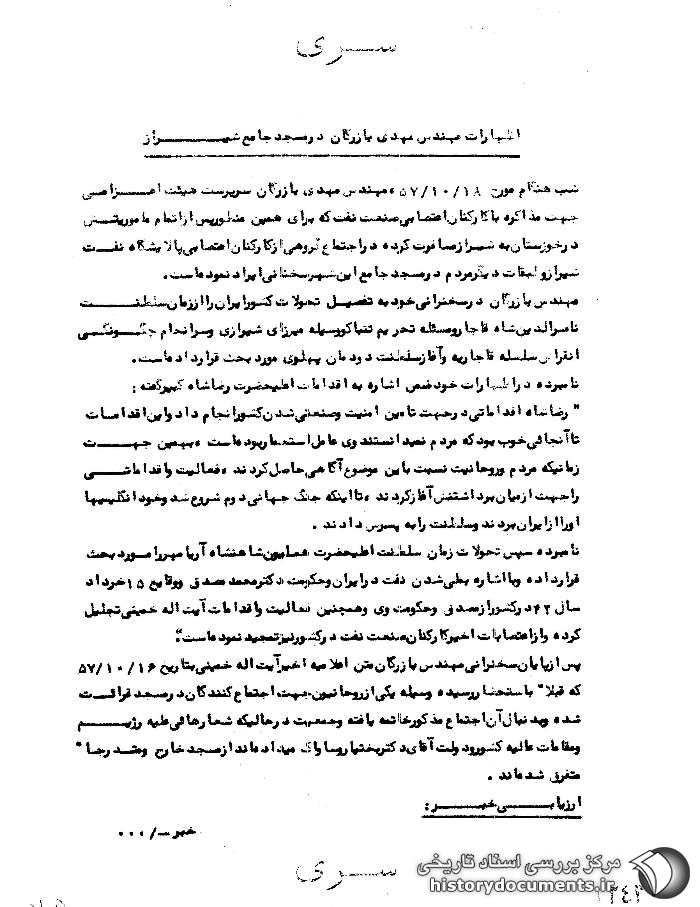 سری
اظهارات مهندس مهدی بازرگان در مسجد جامع شیراز
شب هنگام مورخ ۵۷/۱۰/۱۸ مهندس مهدی بازرگان سرپرست هیئت اعزامی
جهت مذاکره با کارکنان اعتصابی صنعت نفت که برای همین منظور پس از اتمام ماموریتش
در خوزستان به شیراز مسافرت کرده در اجتماع گروهی از کارکنان اعتصابی پالایشگاه نفت
شیراز و طبقات دیگر مردم در مسجد جامع این شهر سخنانی ایراد نموده است.
مهندس بازرگان در سخنرانی خود به تفصیل تحولات کشور ایران را از زمان سلطنت
ناصرالدین شاه قاجار و مسئله تحریم تنباکو وسیله میرزای شیرازی و سرانجام چگونگی
انقراض سلسله قاجاریه و آغاز سلطنت دودمان پهلوی مورد بحث قرار داده است.
نامبرده در اظهارات خود ضمن اشاره به اقدامات اعلیحضرت رضاشاه کبیر گفته :
" رضاشاه اقداماتی در جهت تامین امنیت و صنعتی شدن کشور انجام داد و این اقدامات
تا آنجائی خوب بود که مردم نمیدانستند وی عامل استعمار بوده است، بهمین جهت
زمانیکه مردم و روحانیت نسبت باین موضوع آگاهی حاصل کردند، فعالیت و اقداماتی
را جهت از میان برداشتنش آغاز کردند، تا اینکه جنگ جهانی دوم شروع شد و خود انگلیسیها
او را از ایران بردند و سلطنت را به پسرش دادند .
نامبرده سپس تحولات زمان سلطنت اعلیحضرت همایون شاهنشاه آریامهر را مورد بحث
قرار داده و با اشاره بملی شدن نفت در ایران و حکومت دکتر محمد مصدق و وقایع ۱۵ خرداد
سال ۴۲ در کشور از مصدق و حکومت وی و همچنین فعالیت و اقدامات آیت اله خمینی تجلیل
کرده و از اعتصابات اخیر کارکنان صنعت نفت در کشور نیز تمجید نموده است."
پس از پایان سخنرانی مهندس بازرگان متن اعلامیه اخیر آیت اله خمینی بتاریخ ۵۷/۱۰/۱۶
که قبلا" باستحضار رسیده وسیله یکی از روحانیون جهت اجتماع کنندگان در مسجد قرائت
شده و بدنبال آن اجتماع مذکور خاتمه یافته و جمعیت در حالیکه شعارهائی علیه رژیم
و مقامات عالیه کشور و دولت آقای دکتر بختیار و ساواک میداده اند از مسجد خارج و متدرجا"
متفرق شده اند .
ارزیابی خبر :
خبر -/۰۰۰
سری
مرکز بررسی اسناد تاریخی
historydocuments.ir